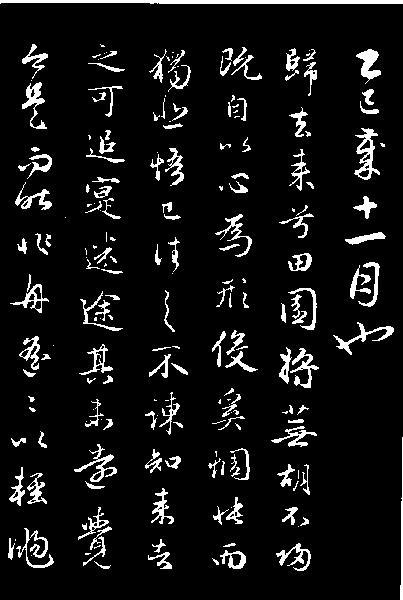 乙巳歲十一月也
歸去来兮田園将蕪胡不歸
既自以心為形役奚惆悵而
獨悲悟已往之不諫知来者
之可追寔迷途其未遠覺
今是而昨非舟遙〻以輕颺